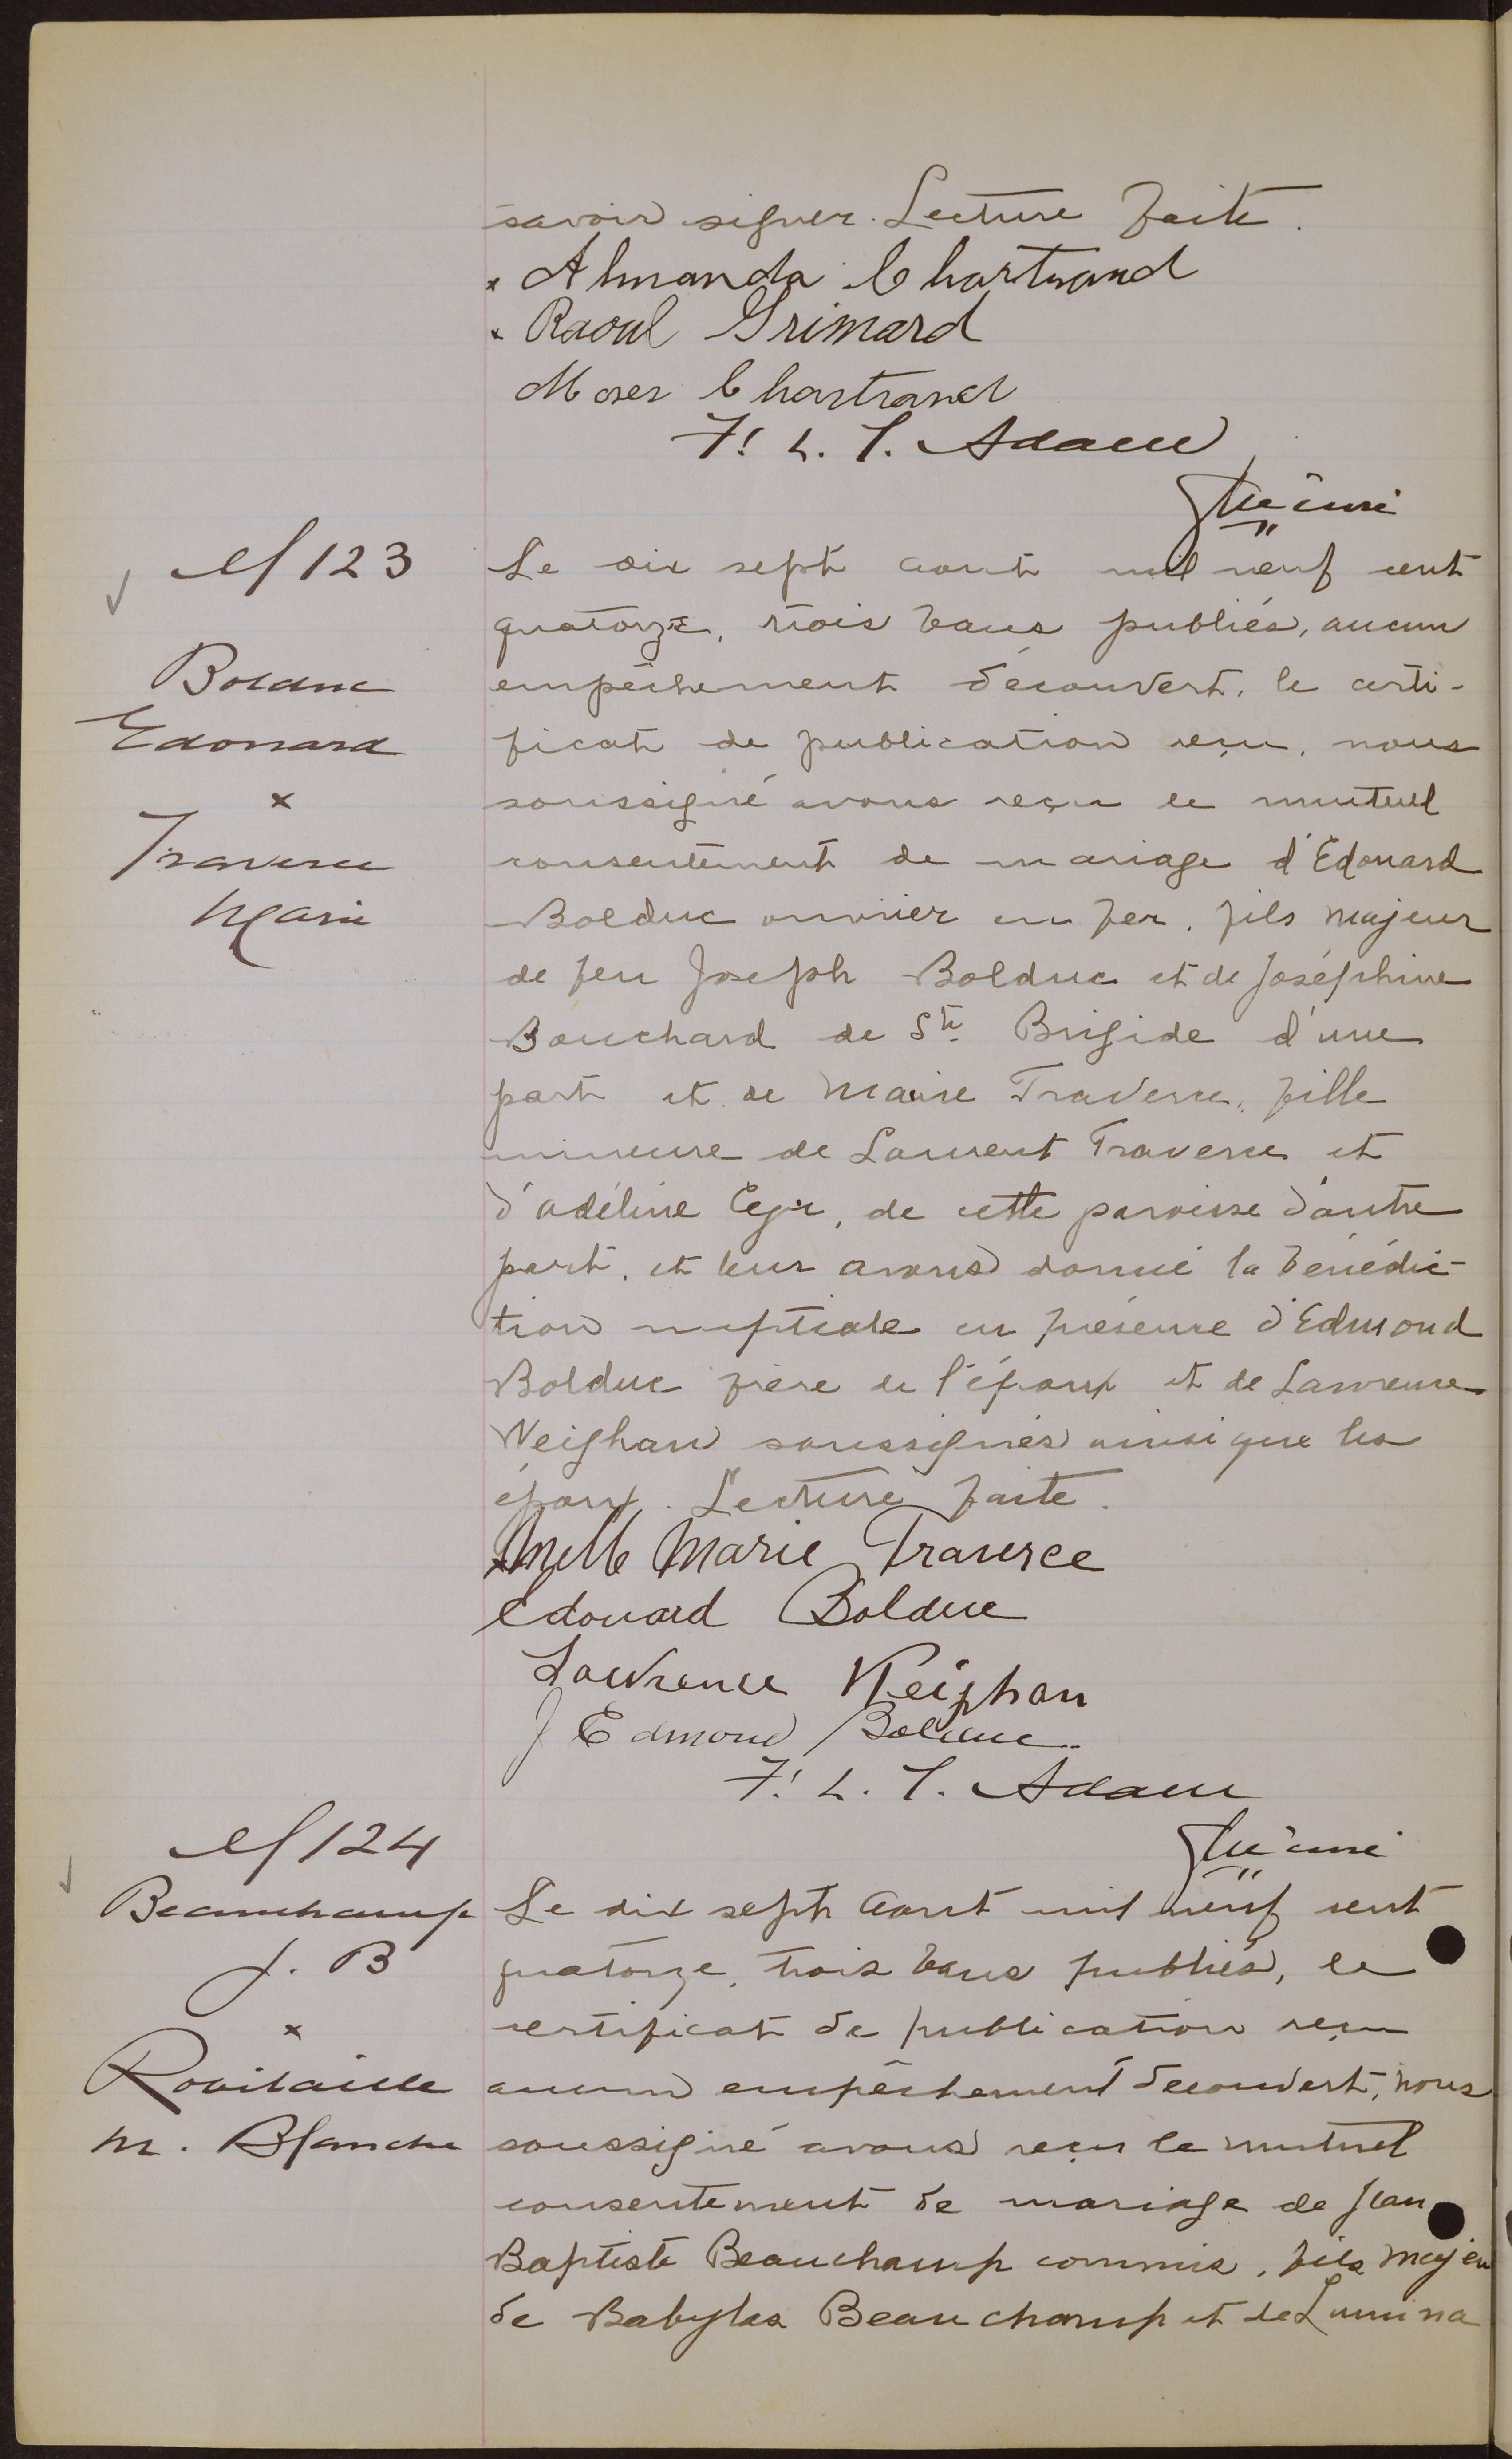 savoir signer. Lecture faite.
x Almanda Chartrand
x Raoul Grimard
Moses Chartrand
F. L. T. Adam
Ptre curé
M 123
Bolduc
Edouard
x
Traverse
Marie
Le dix sept aout mil neuf cent
quatorze, trois bans publiés, aucun
empêchement découvert, le certi-
ficat de publication reçu, nous
soussigné avons reçu le mutuel
consentement de mariage d'Edouard
Bolduc ouvrier en fer, fils majeur
de feu Joseph Bolduc et de Joséphine
Bouchard de Ste Brigide d'une
part et de Marie Traverse, fille
mineure de Laurent Traverse et
d'adéline, de cette paroisse d'autre
part, et leur avons donné la bénédic-
tion nuptiale en présence d'Edmond
Bolduc frère de l'époux et de Lawrence
Neighan soussignés ainsi que les
époux. Lecture faite.
x Melle Marie Traverse
Edouard Bolduc
Lawrence Neighan
J Edmond Bolduc
F. L. T. Adam
Ptre curé
M 124
Beauchamp
J. B
x
Robitaille
M. Blanche
Le dix sept aout mil neuf cent
quatorze, trois bans publiés, le
certificat de publication reçu
aucun empêchement découvert, nous
soussigné avons reçu le mutuel
consentement de mariage de Jean
Baptiste Beauchamp commis, fils majeu
de Babylas Beauchamp et de Lumina